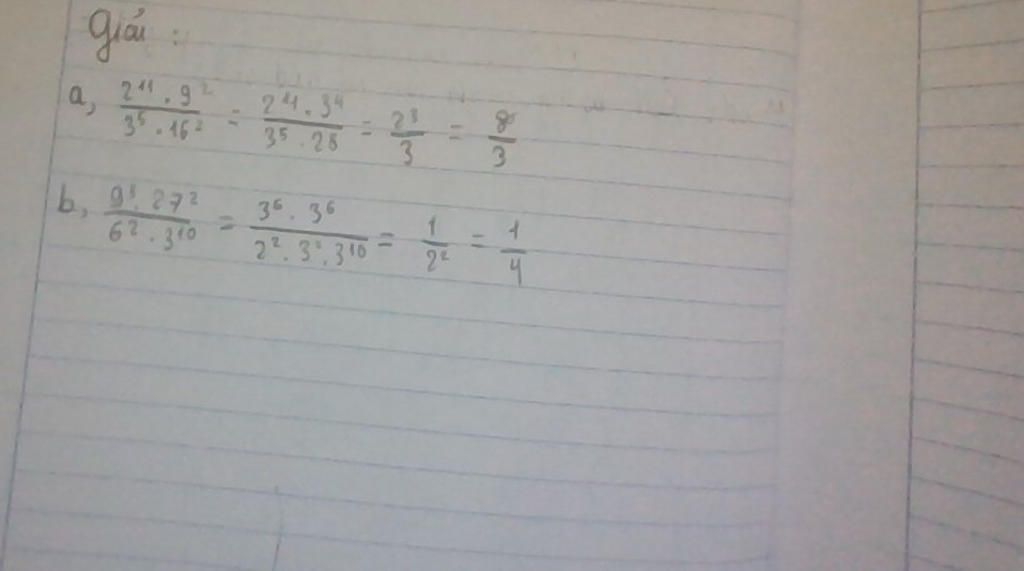 Giải :
a, \frac{2^{11} . 9^2}{3^5 . 16^2} = \frac{2^{11} . 3^4}{3^5 . 2^8} = \frac{2^3}{3} = \frac{8}{3}
b, \frac{9^3 . 27^2}{6^2 . 3^{10}} = \frac{3^6 . 3^6}{2^2 . 3^2 . 3^{10}} = \frac{1}{2^2} = \frac{1}{4}